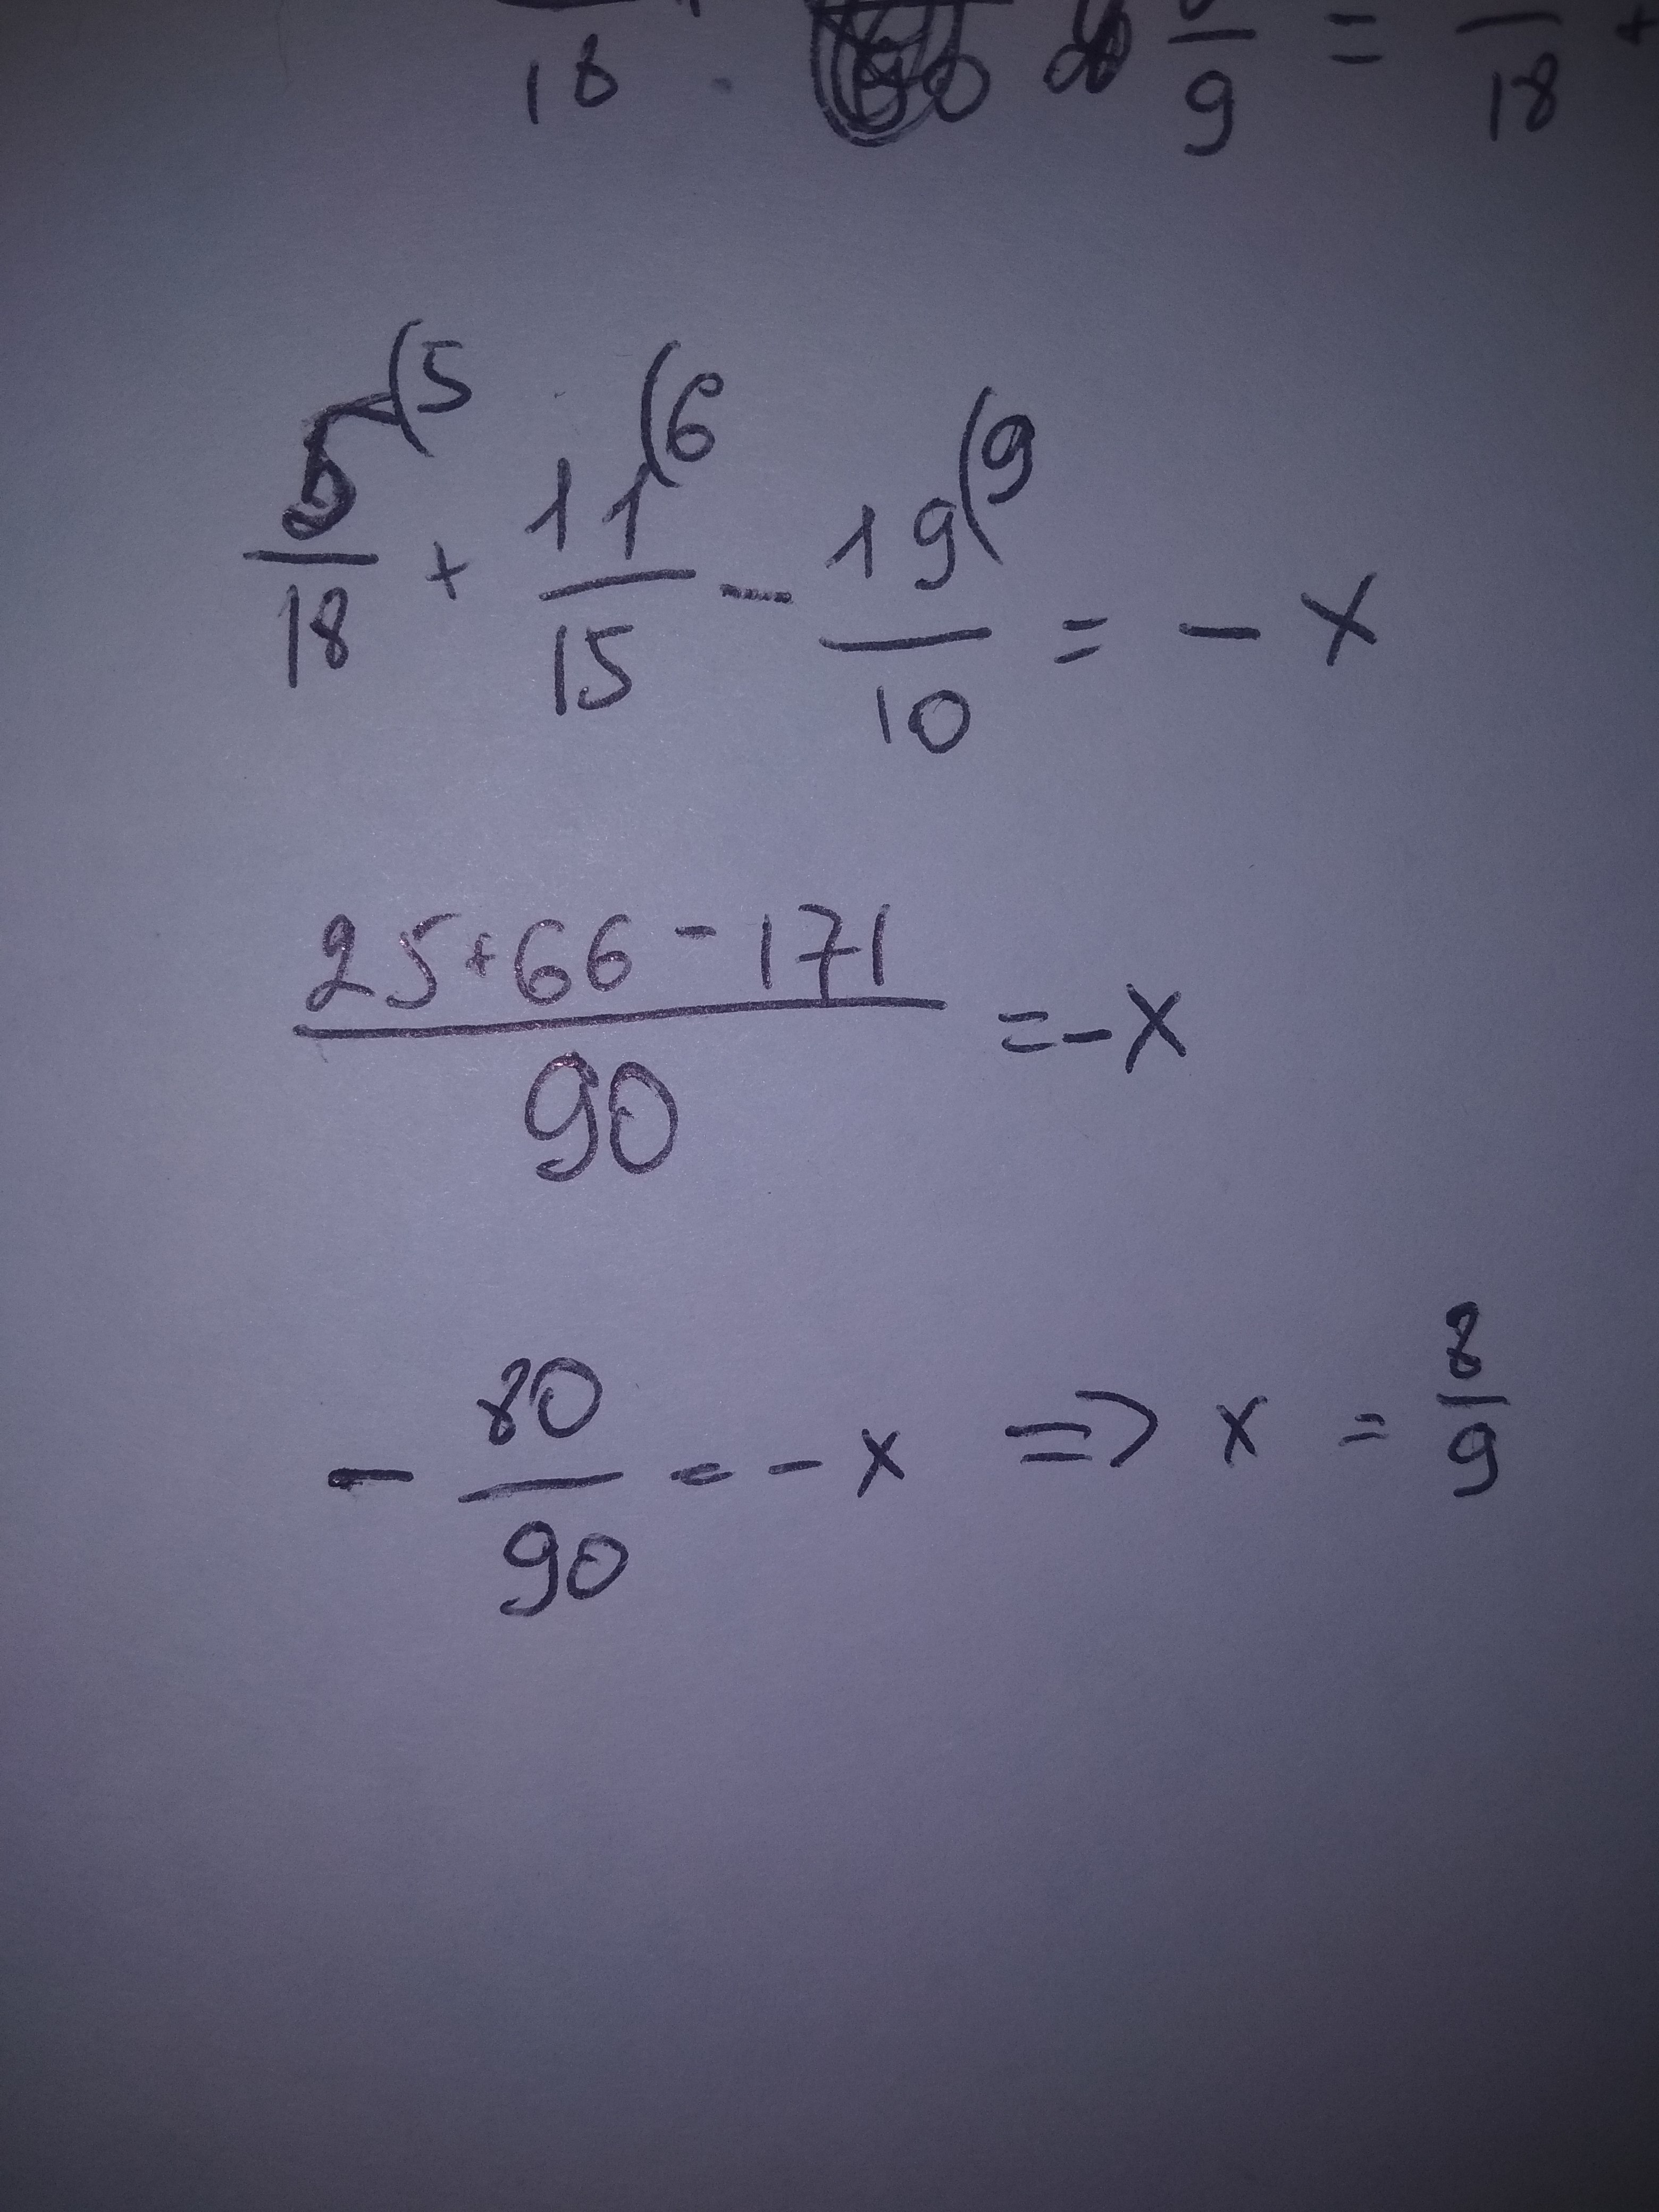 18 9 = 18 +
5(5 11(6 19(9
18 + 15 - 10 = - x
25+66-171
90 =-x
- 80/90 = - x => x = 8/9